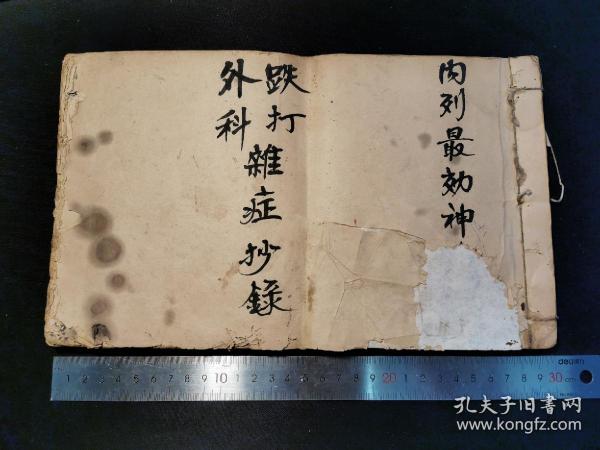 内列最効神
跌打
外科
雜症抄錄
deli
1 2 3 4 5 6 7 8 9 10 1 2 3 4 5 6 7 8 9 20 1 2 3 4 5 6 7 8 9 30 cm
孔夫子旧書网
www.kongfz.com